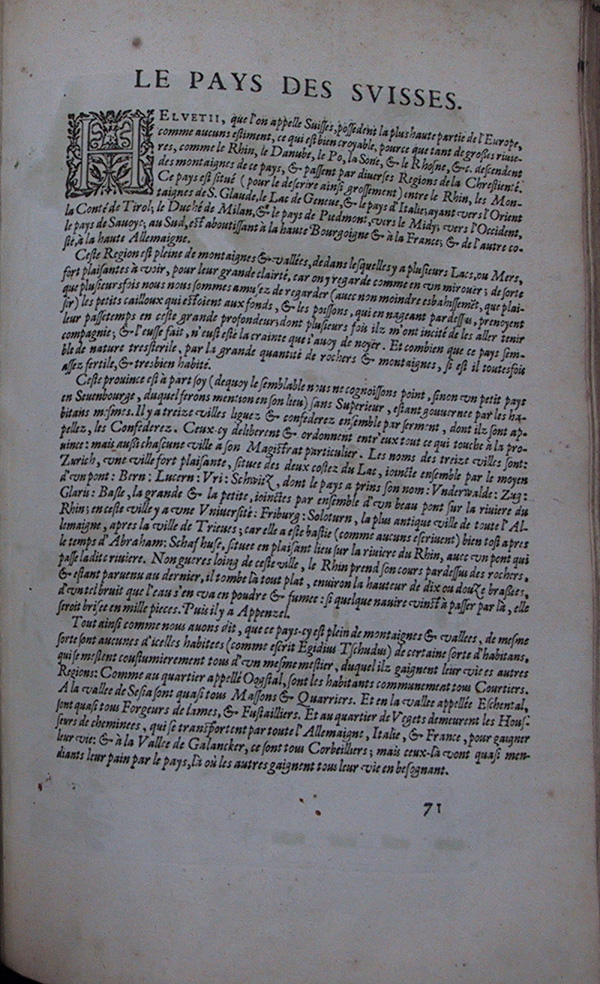 LE PAYS DES SVISSES.
HELVETII, que l'on appelle Suisses, possedent la plus haute partie de l'Europe,
comme aucuns estiment, ce qui est bien croyable, pource que tant de grosses riuie-
res, comme le Rhin, le Danube, le Po, la Sone, & le Rhosne, &c. descendent
des montaignes de ce pays, & passent par diuerses Regions de la Chrestienté.
Ce pays est situé (pour le descrire ainsi grossement) entre le Rhin, les Mon-
taignes de S. Glaude, le Lac de Geneue, & le pays d'Italie; ayant vers l'Orient
la Conté de Tirol; le Duché de Milan, & le pays de Piedmont, vers le Midy; vers l'Occident,
le pays de Sauoye; au Sud, est aboutissant à la haute Bourgoigne & à la France; & de l'autre co-
sté, à la haute Allemaigne.
Ceste Region est pleine de montaignes & vallées, dedans lesquelles y a plusieurs Lacs, ou Mers,
fort plaisantes à voir, pour leur grande clairté, car on y regarde comme en vn mirouer; de sorte
que plusieurs fois nous nous sommes amusez de regarder (auec non moindre esbahissemēt, que plai-
sir) les petits cailloux qui estoient aux fonds, & les poissons, qui en nageant pardessus, prenoyent
leur passetemps en ceste grande profondeur; dont plusieurs fois ilz m'ont incité de les aller tenir
compagnie; & l'eusse fait, n'eust esté la crainte que i'auoy de noyer. Et combien que ce pays sem-
ble de nature tressterile, par la grande quantité de rochers & montaignes, si est il toutesfois
assez fertile, & tresbien habité.
Ceste prouince est à part soy (dequoy le semblable nous ne cognoissons point, sinon vn petit pays
en Seuenbourge, duquel ferons mention en son lieu) sans Superieur, estant gouuernee par les ha-
bitans mesmes. Il y a treize villes liguez & confederez ensemble par serment, dont ilz sont ap-
pellez, les Confederez. Ceux-cy deliberent & ordonnent entr'eux tout ce qui touche à la pro-
uince: mais aussi chascune ville a son Magistrat particulier. Les noms des treize villes sont:
Zurich, vne ville fort plaisante, situee des deux costez du Lac, ioincte ensemble par le moyen
d'vn pont: Bern: Lucern: Vri: Schwitz, dont le pays a prins son nom: Vnderwalde: Zug:
Glaris: Basle, la grande & la petite, ioinctes par ensemble d'vn beau pont sur la riuiere du
Rhin; en ceste ville y a vne Vniuersité: Friburg: Soloturn, la plus antique ville de toute l'Al-
lemaigne, apres la ville de Trieues; car elle a esté bastie (comme aucuns escriuent) bien tost apres
le temps d'Abraham: Schafhuse, situee en plaisant lieu sur la riuiere du Rhin, auec vn pont qui
passe ladite riuiere. Non gueres loing de ceste ville, le Rhin prend son cours pardessus des rochers,
& estant paruenu au dernier, il tombe là tout plat, enuiron la hauteur de dix ou douze brassees,
d'vn tel bruit que l'eau s'en va en poudre & fumee: si quelque nauire vinst à passer par là, elle
seroit brisee en mille pieces. Puis il y a Appenzel.
Tout ainsi comme nous auons dit, que ce pays-cy est plein de montaignes & vallees, de mesme
sorte sont aucunes d'icelles habitees (comme escrit Egidius Tschudus) de certaine sorte d'habitans,
qui se meslent coustumierement tous d'vn mesme mestier, duquel ilz gaignent leur vie es autres
Regions: Comme au quartier appellé Ocgstal, sont les habitants communement tous Courtiers.
A la vallee de Sesia sont quasi tous Massons & Quarriers. Et en la vallee appellée Eschental,
sont quasi tous Forgeurs de lames, & Fustailliers. Et au quartier de Vegets demeurent les Hous-
seurs de cheminees, qui se transportent par toute l'Allemaigne, Italie, & France, pour gaigner
leur vie: & à la Vallee de Galancker, ce sont tous Corbeilliers; mais ceux-là vont quasi men-
diants leur pain par le pays, là où les autres gaignent tous leur vie en besognant.
71